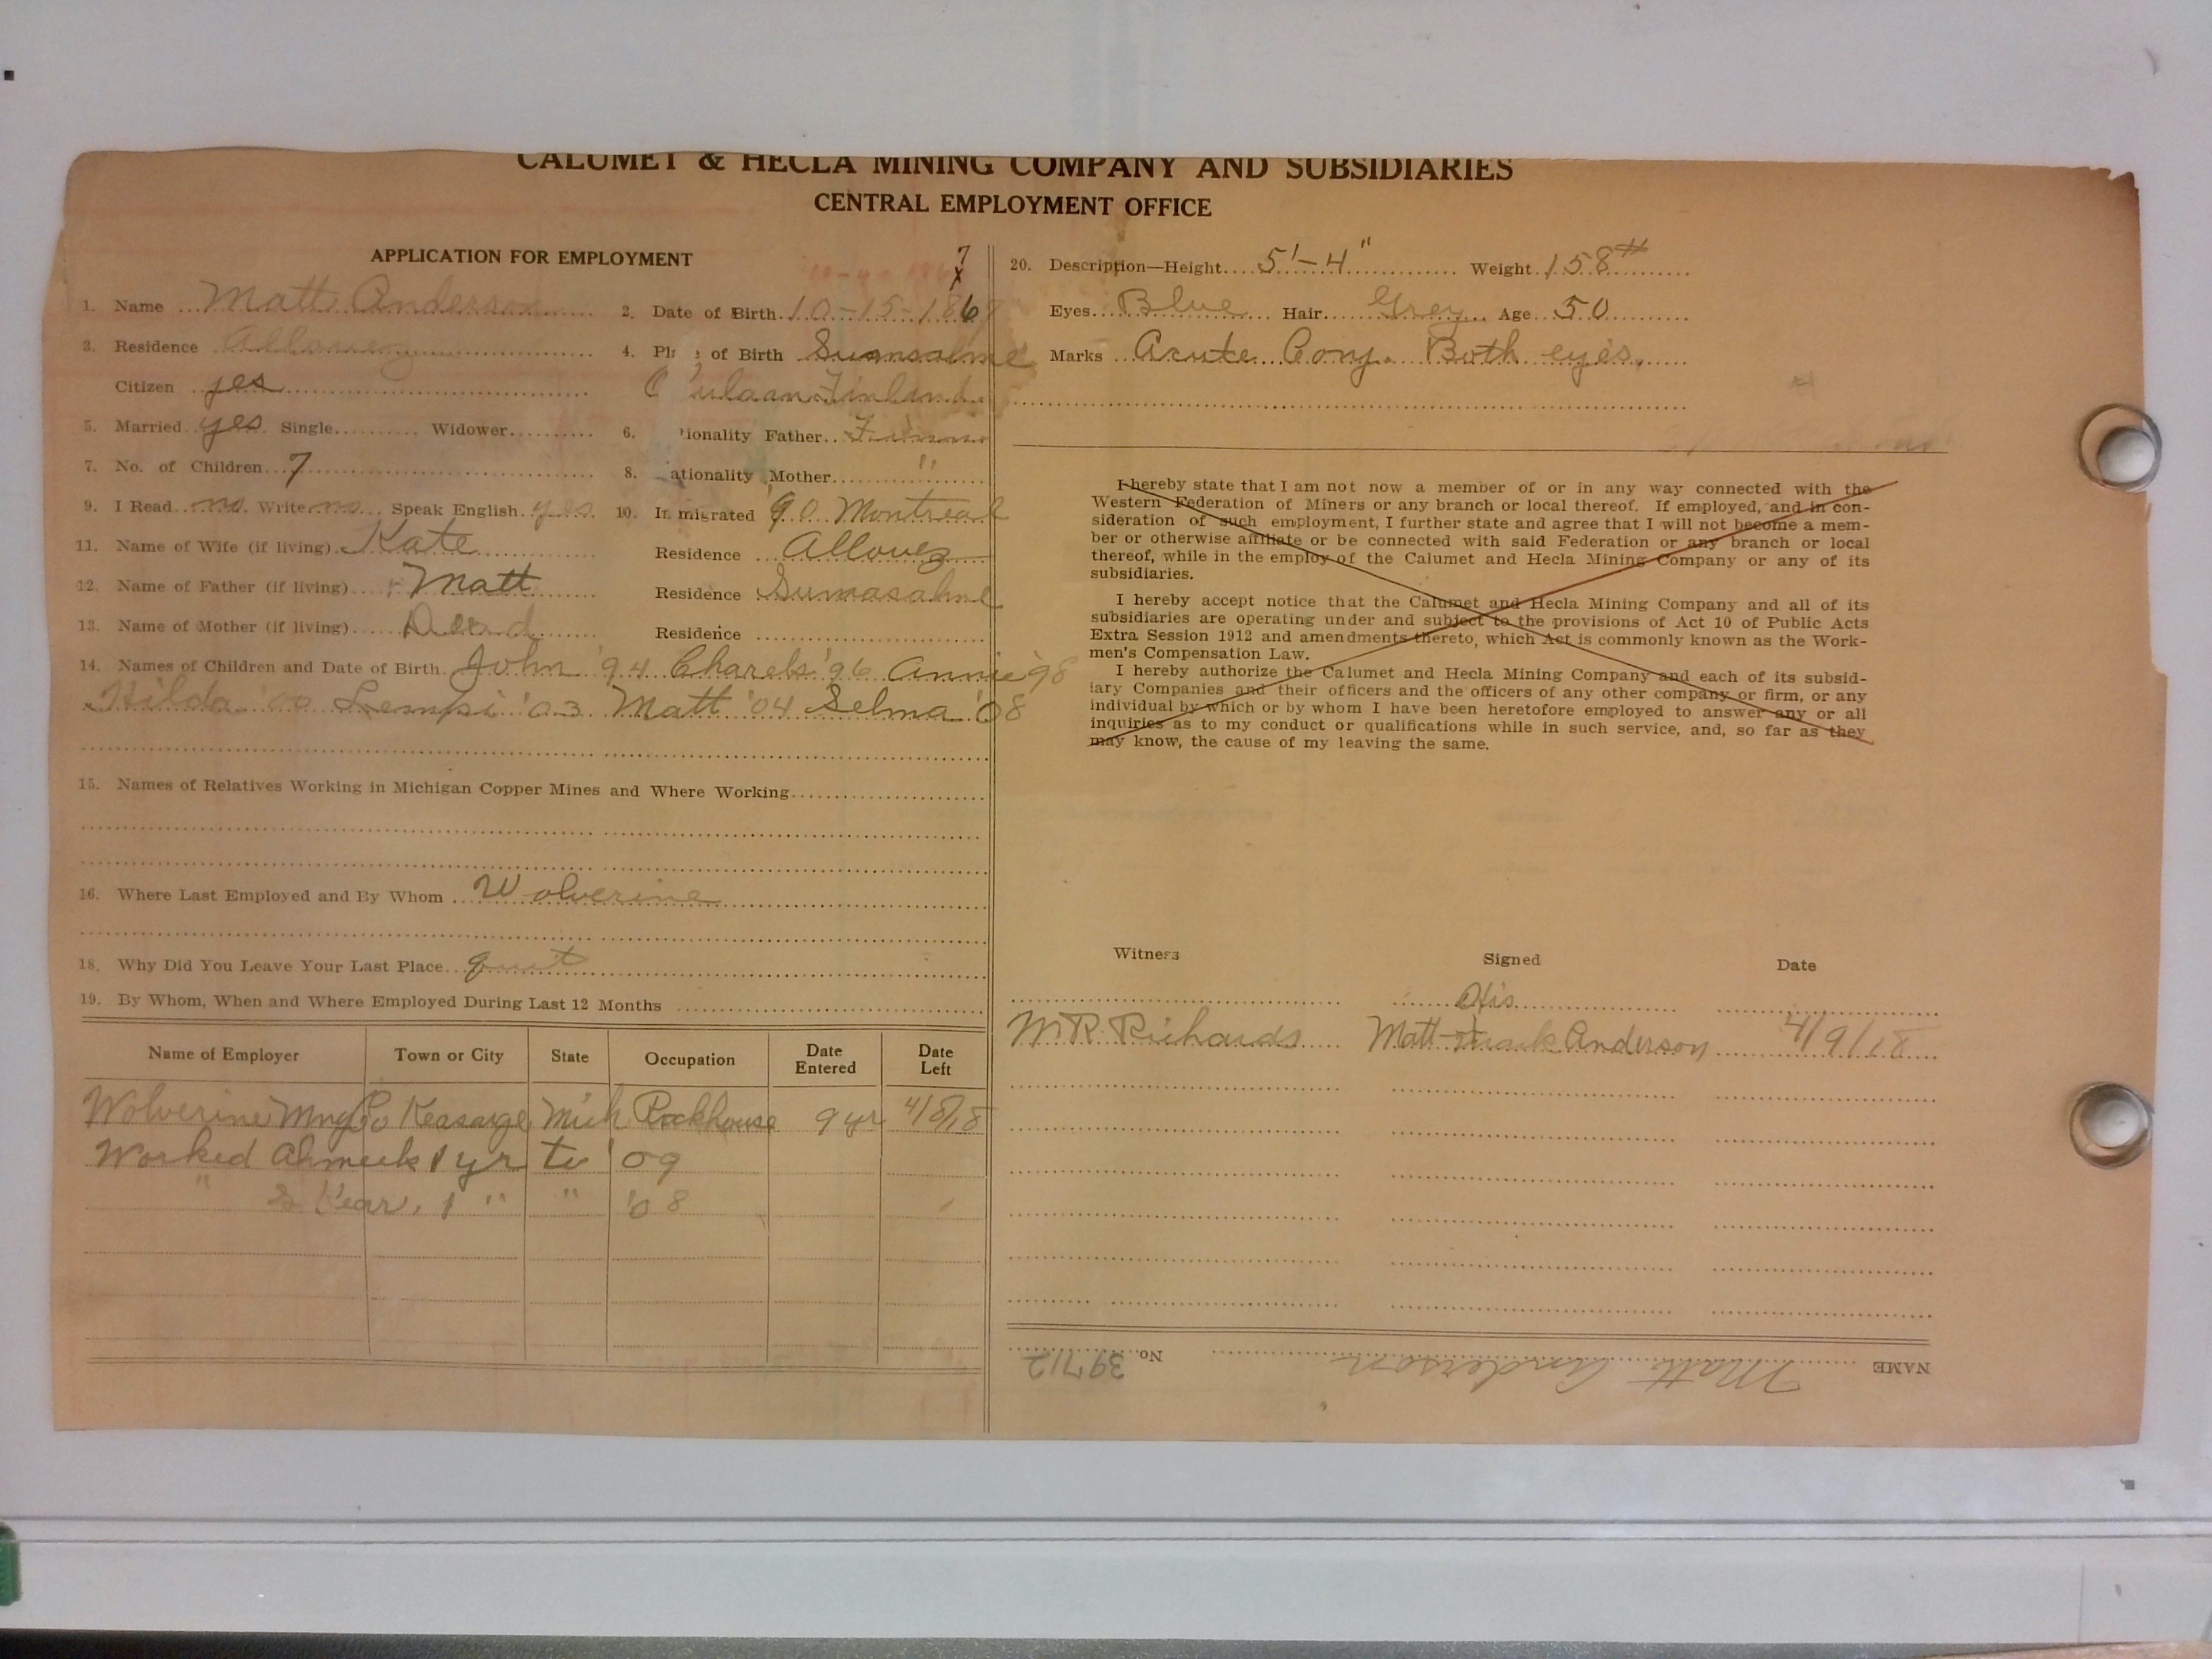 CALUMET & HECLA MINING COMPANY AND SUBSIDIARIES
CENTRAL EMPLOYMENT OFFICE
APPLICATION FOR EMPLOYMENT
7
x
1. Name Matt Anderson 2. Date of Birth 10-15-1867
3. Residence Allouez 4. Pl e of Birth
Citizen yes Finland
5. Married yes Single Widower 6. ionality Father
7. No. of Children 7 8. ationality Mother "
9. I Read no Write no Speak English yes 10. Immigrated '90 Montreal
11. Name of Wife (if living) Kate Residence Allouez
12. Name of Father (if living) Matt Residence
13. Name of Mother (if living) Dead Residence
14. Names of Children and Date of Birth. John '94 Charels '96 Annie '98
Hilda '00 Lempi '03 Matt '04 Selma '08
15. Names of Relatives Working in Michigan Copper Mines and Where Working
16. Where Last Employed and By Whom Wolverine
18. Why Did You Leave Your Last Place quit
19. By Whom, When and Where Employed During Last 12 Months
Name of Employer Town or City State Occupation Date Entered Date Left
Wolverine Mng Co Keasarge Mich Rockhouse 9 yr 4/8/18
Worked Ahmeek 1 yr to '09
" Kear. 1 " " '08
20. Description—Height 5'-4" Weight 158#
Eyes Blue Hair Grey Age 50
Marks Acute Conj. Both eyes.
I hereby state that I am not now a member of or in any way connected with the
Western Federation of Miners or any branch or local thereof. If employed, and in con-
sideration of such employment, I further state and agree that I will not become a mem-
ber or otherwise affiliate or be connected with said Federation or any branch or local
thereof, while in the employ of the Calumet and Hecla Mining Company or any of its
subsidiaries.
I hereby accept notice that the Calumet and Hecla Mining Company and all of its
subsidiaries are operating under and subject to the provisions of Act 10 of Public Acts
Extra Session 1912 and amendments thereto, which Act is commonly known as the Work-
men's Compensation Law.
I hereby authorize the Calumet and Hecla Mining Company and each of its subsid-
iary Companies and their officers and the officers of any other company or firm, or any
individual by which or by whom I have been heretofore employed to answer any or all
inquiries as to my conduct or qualifications while in such service, and, so far as they
may know, the cause of my leaving the same.
Witness Signed Date
His
M R Richards Matt mark Anderson 4/9/18
NAME Matt Anderson No. 39712